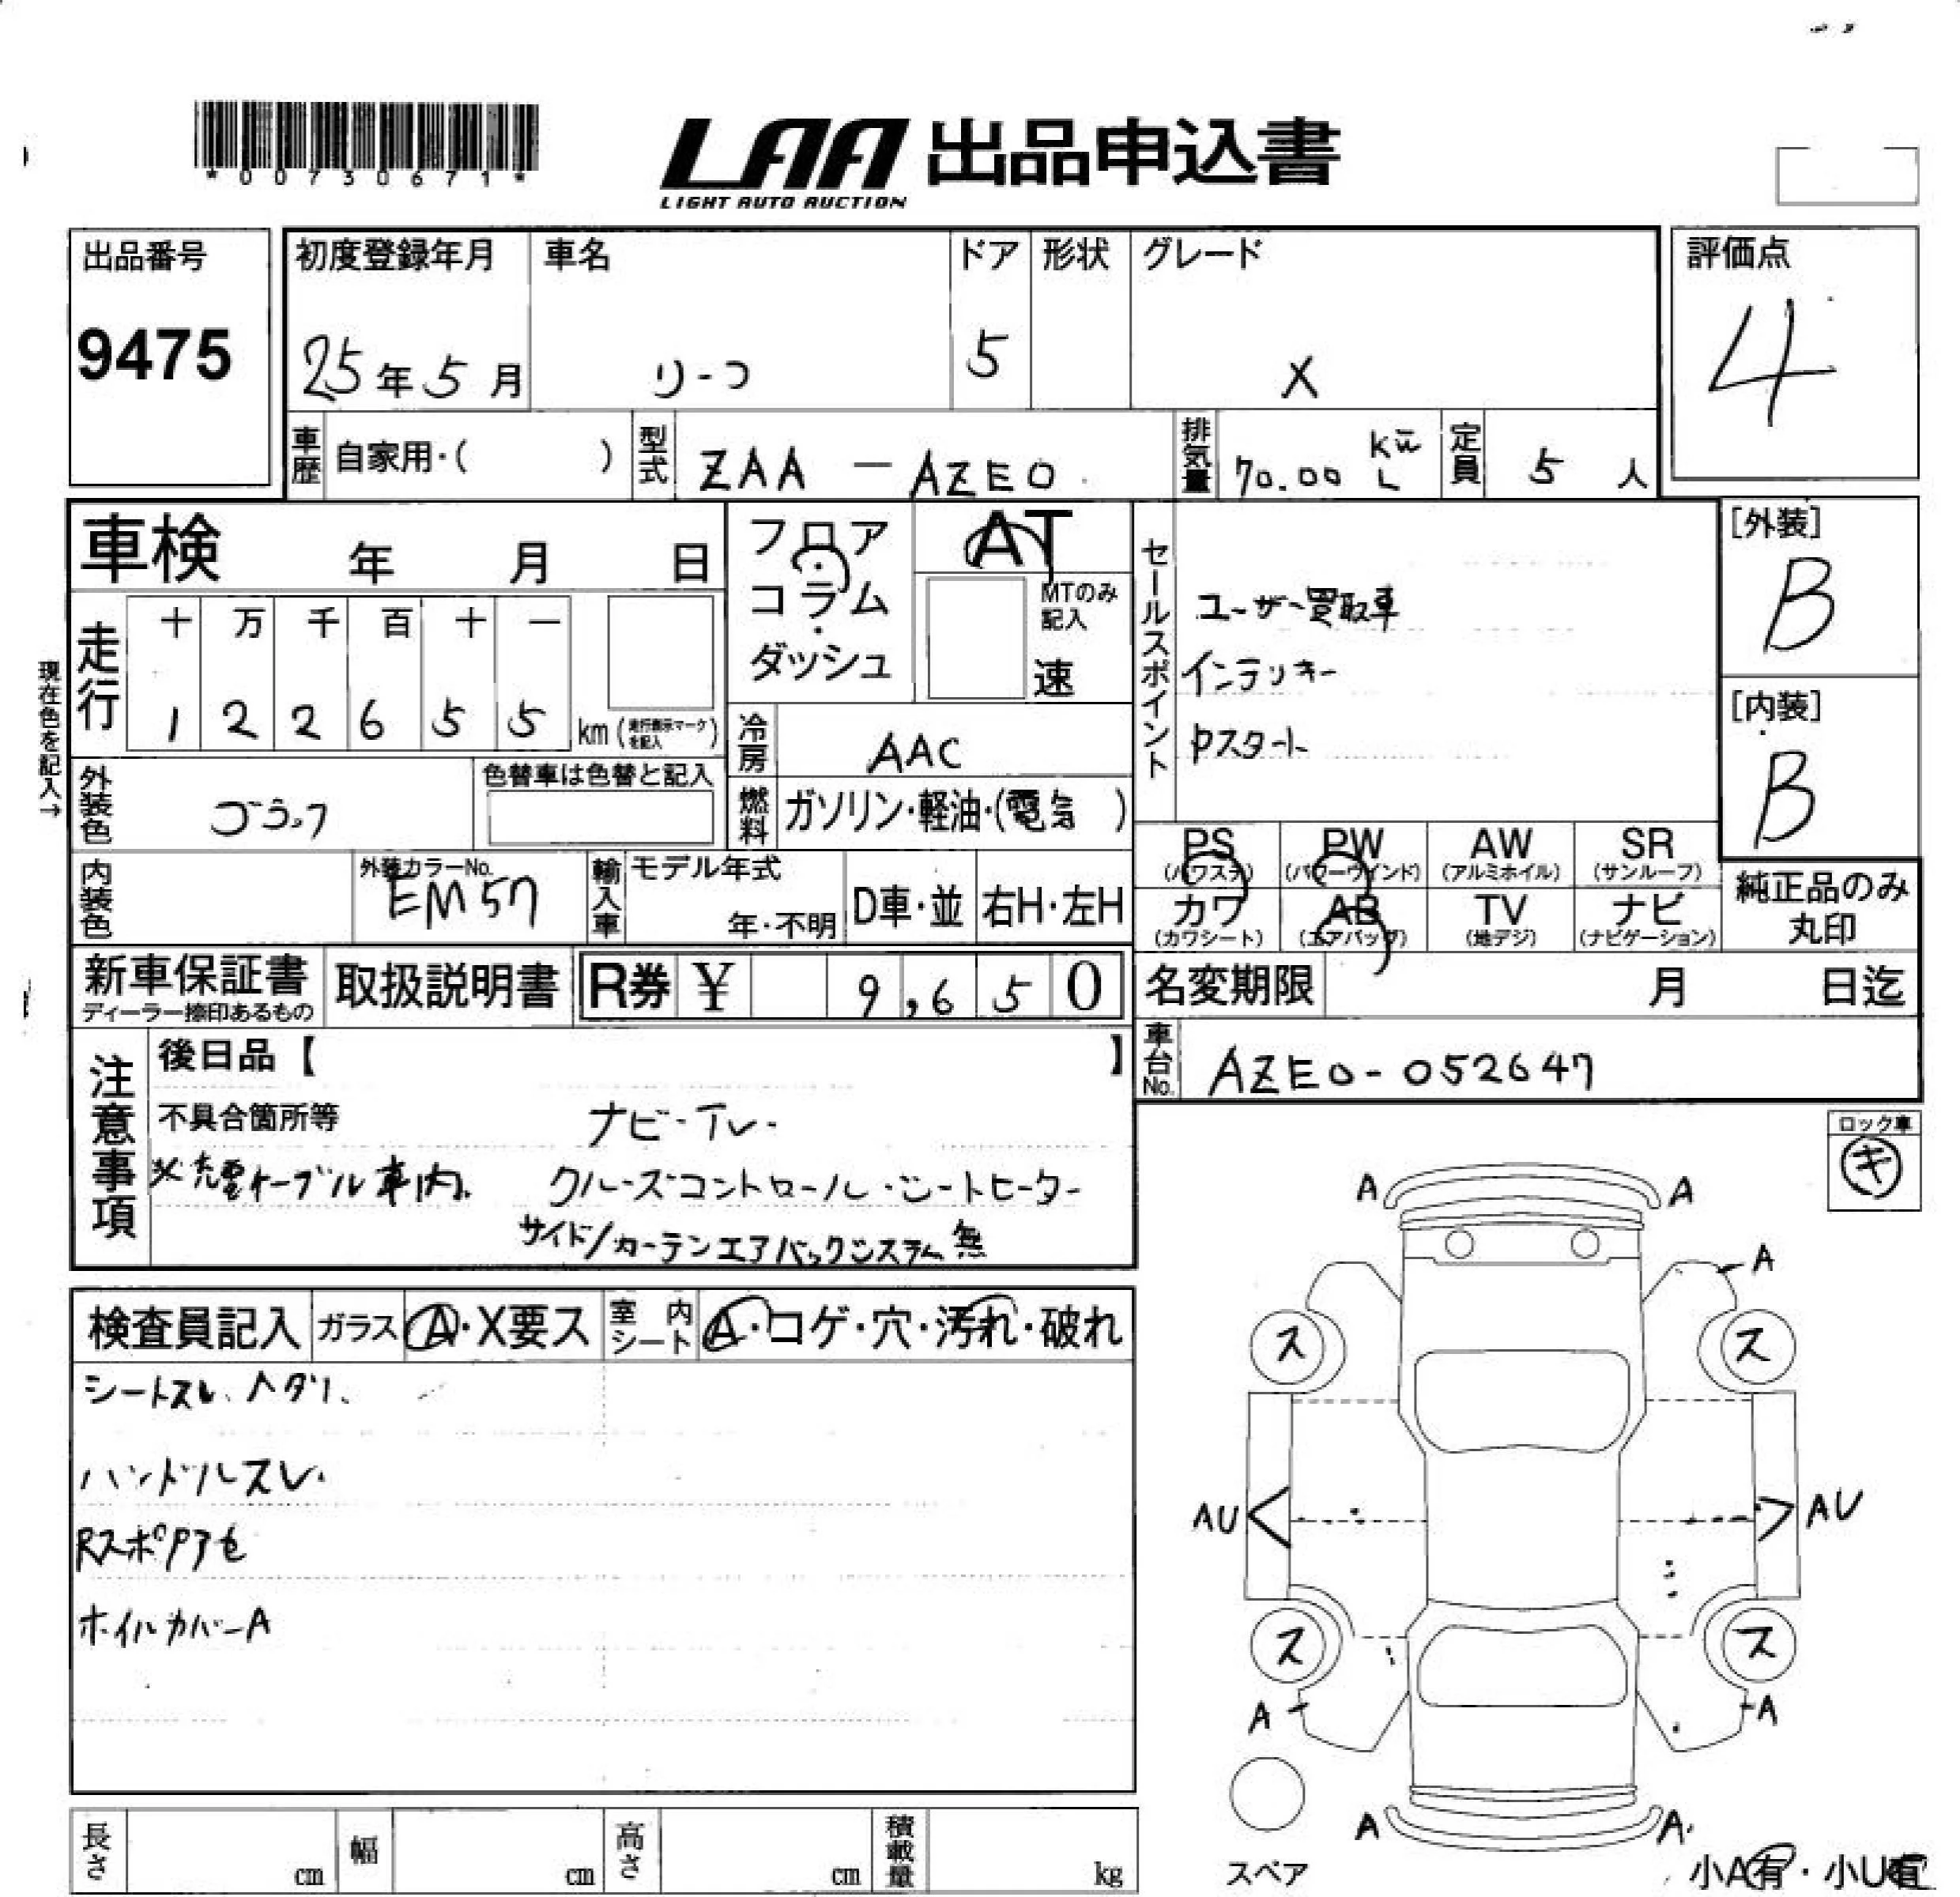 *00730671*
LAA 出品申込書
LIGHT AUTO AUCTION
出品番号
9475
初度登録年月
25年5月
車名
リーフ
ドア
5
形状
グレード
X
評価点
4
車歴 自家用・( )
型式 ZAA - AZE0
排気量 70.00 kw L
定員 5 人
車検 年 月 日
フロア・コラム・ダッシュ
AT
MTのみ記入
速
セールスポイント
ユーザー買取車
インテリキー
Pスタート
[外装]
B
[内装]
B
現在色を記入→
走行
十 万 千 百 十 一
1 2 2 6 5 5 km (走行表示マークを記入)
冷房 AAC
外装色
色替車は色替と記入
燃料 ガソリン・軽油・(電気)
内装色
外装カラーNo.
EM57
輸入車
モデル年式
年・不明
D車・並
右H・左H
PS (パワステ)
PW (パワーウインド)
AW (アルミホイル)
SR (サンルーフ)
カワ (カワシート)
AB (エアバッグ)
TV (地デジ)
ナビ (ナビゲーション)
純正品のみ丸印
新車保証書
ディーラー捺印あるもの
取扱説明書
R券 ¥ 9,650
名変期限 月 日迄
車台No. AZE0-052647
注意事項
後日品【 】
不具合箇所等
ナビ・TV・
※充電ケーブル車内。 クルーズコントロール・シートヒーター
サイド/カーテンエアバックシステム無
ロック車
キ
検査員記入
ガラス A・X要ス
室内シート A・コゲ・穴・汚れ・破れ
シートスレ、ヘタリ、
ハンドルスレ
ホイルカバーA
A A
A
ス ス
AU AU
ス ス
A A
A A
スペア
小A有・小U有
長さ cm
幅 cm
高さ cm
積載量 kg